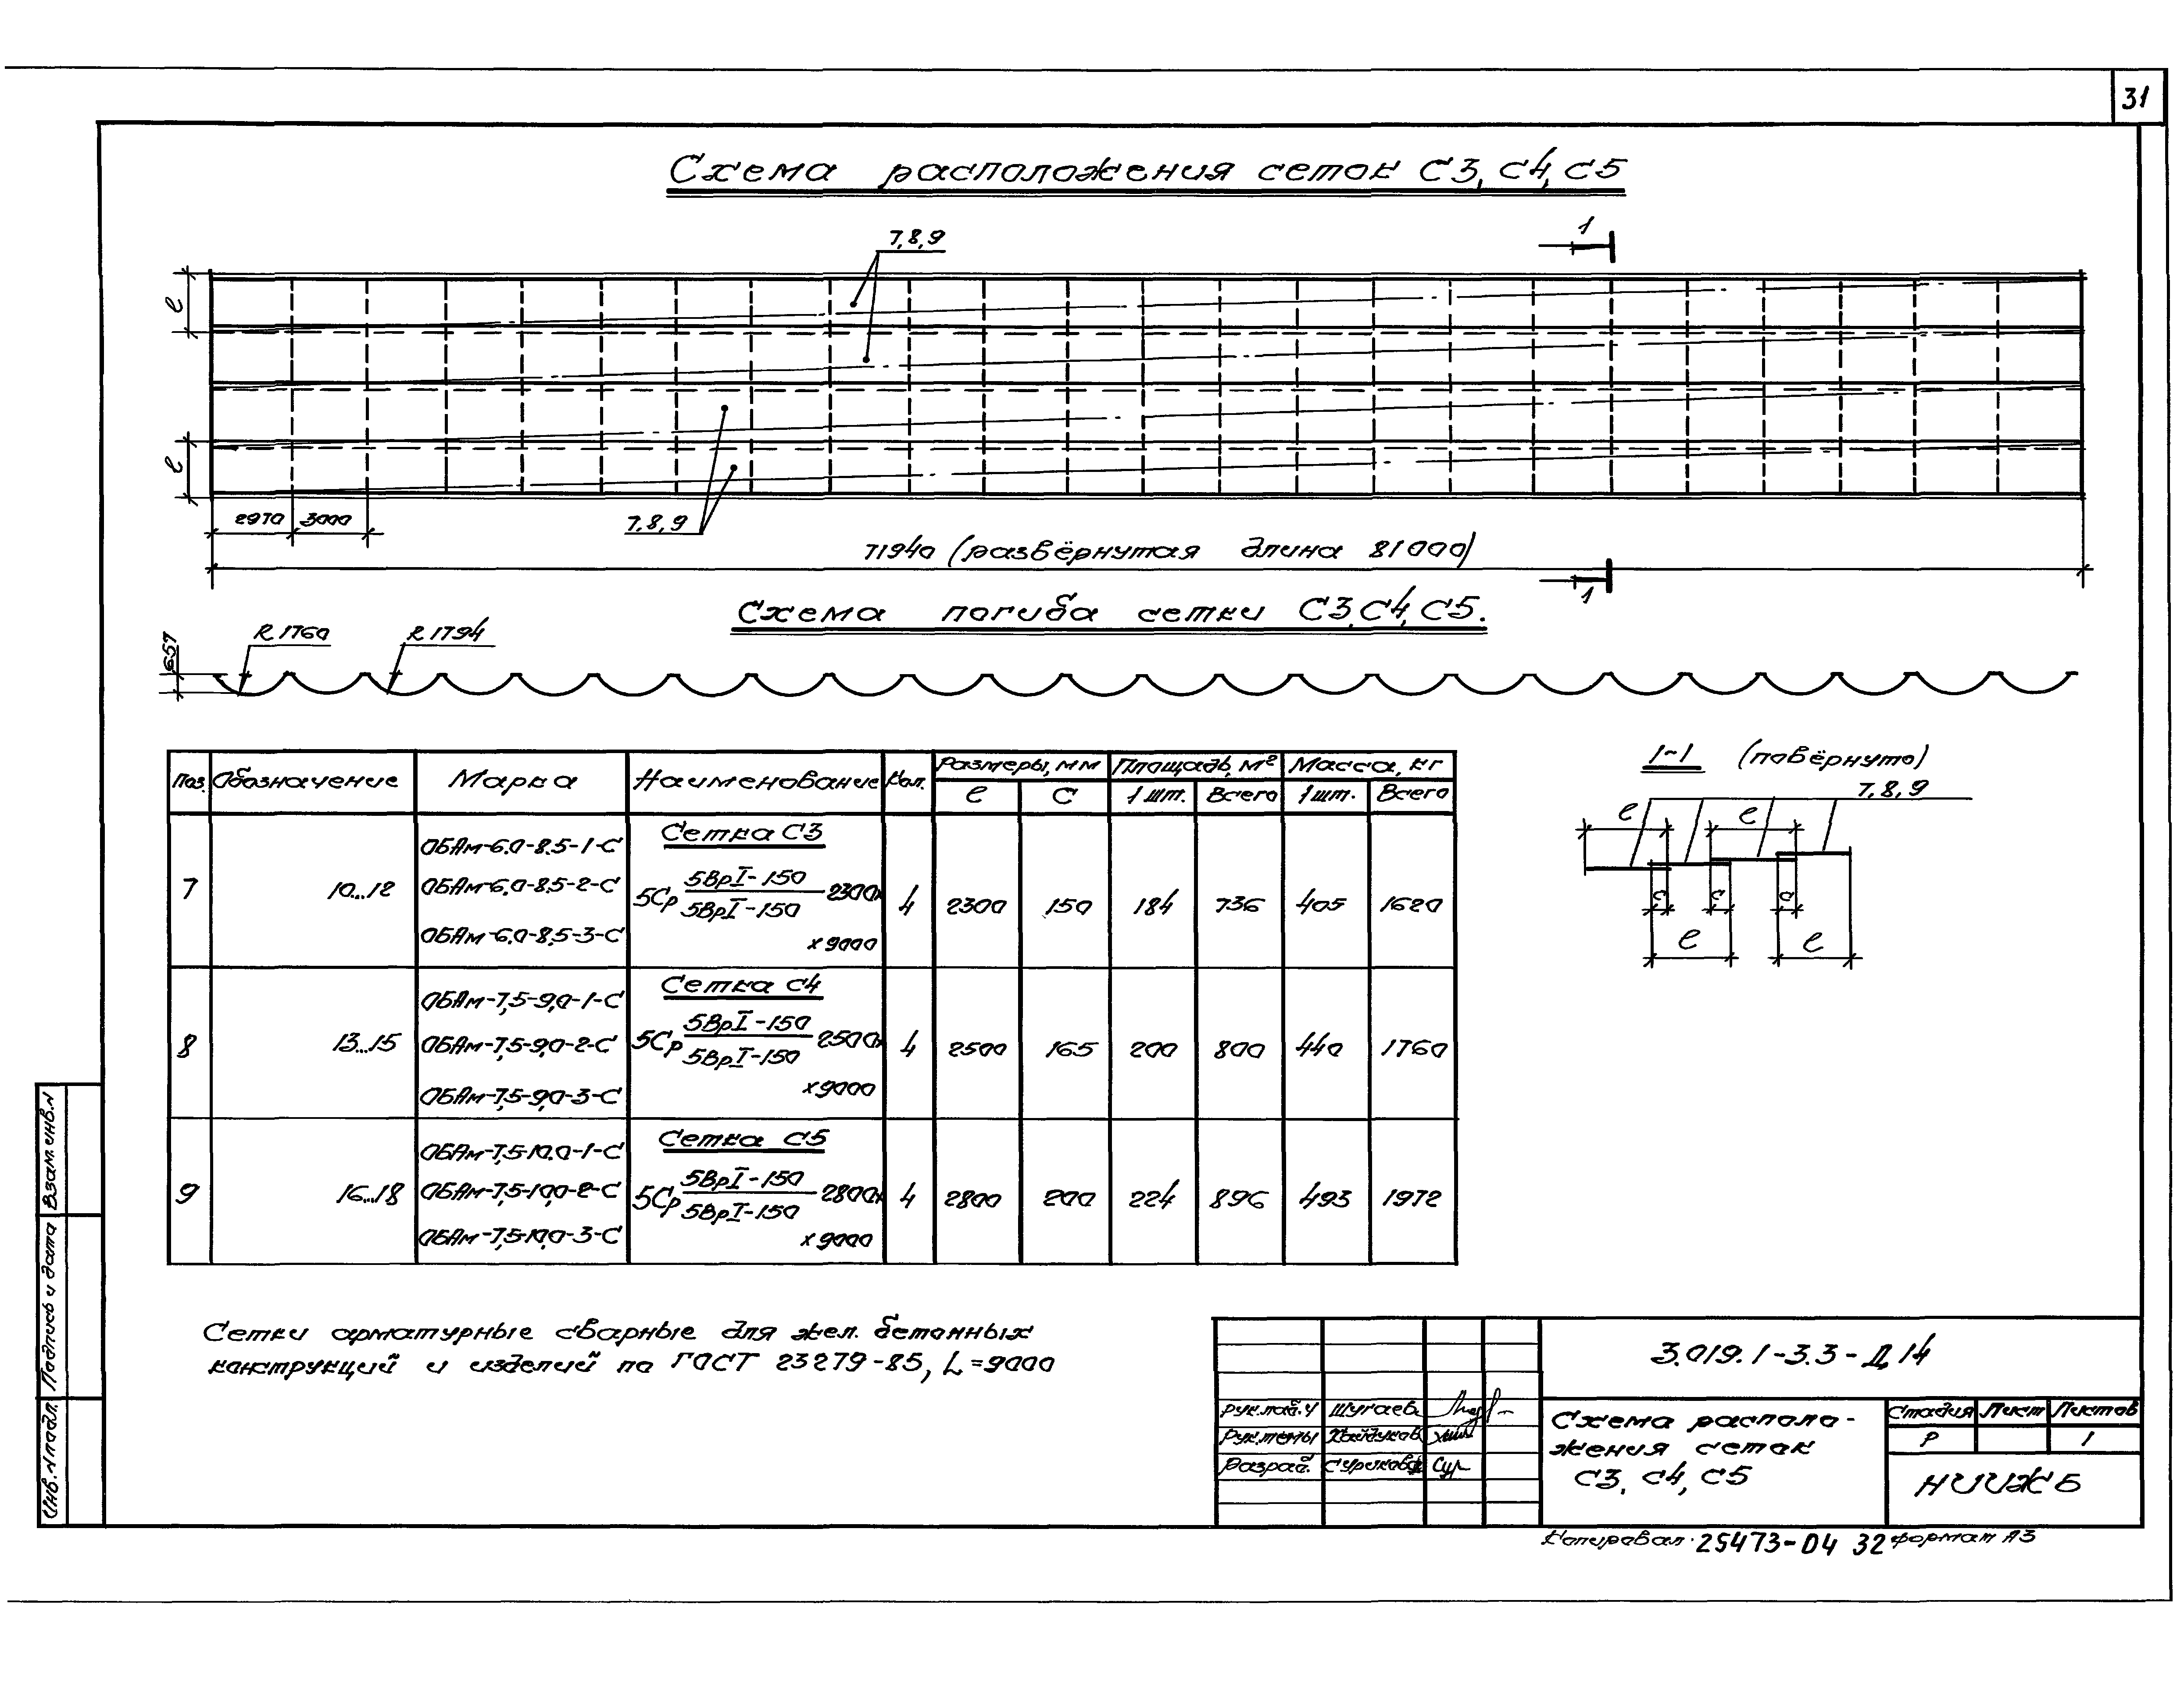 31
Схема расположения сеток С3, С4, С5
7, 8, 9
1
ℓ
ℓ
2970 3000
7, 8, 9
71940 (развёрнутая длина 81000)
1
Схема погиба сетки С3, С4, С5.
657
R 1760
R 1794
Поз. Обозначение Марка Наименование Кол. Размеры, мм Площадь, м² Масса, кг
ℓ С 1 шт. Всего 1 шт. Всего
Сетка С3
ОБАм-6.0-8.5-1-С
7 10...12 ОБАм-6,0-8,5-2-С 5Ср 5ВрI-150 / 5ВрI-150 2300х 4 2300 150 184 736 405 1620
ОБАм-6,0-8,5-3-С х 9000
Сетка С4
ОБАм-7,5-9,0-1-С
8 13...15 ОБАм-7,5-9,0-2-С 5Ср 5ВрI-150 / 5ВрI-150 2500х 4 2500 165 200 800 440 1760
ОБАм-7,5-9,0-3-С х 9000
Сетка С5
ОБАм-7,5-10.0-1-С
9 16...18 ОБАм-7,5-10,0-2-С 5Ср 5ВрI-150 / 5ВрI-150 2800х 4 2800 200 224 896 493 1972
ОБАм-7,5-10,0-3-С х 9000
1-1 (повёрнуто)
7, 8, 9
ℓ ℓ
с с с
ℓ ℓ
Сетки арматурные сварные для жел. бетонных
конструкций и изделий по ГОСТ 23279-85, L=9000
3.019.1-3.3-Д 14
Рук.лаб.
Шугаев
Рук.темы
Хайдуков
Разраб.
Сурикова
Сур
Схема располо-
жения сеток
С3, С4, С5
Стадия Лист Листов
Р 1
НИИЖБ
Копировал 25473-04 32 формат А3
Взам. инв. N
Подпись и дата
Инв. N подл.